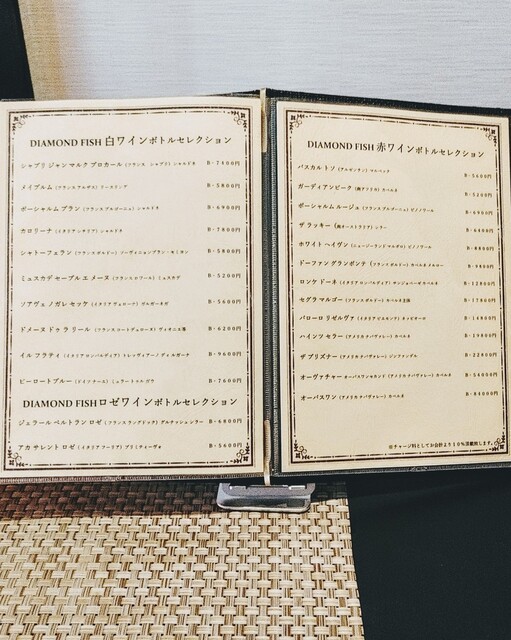 DIAMOND FISH 白ワインボトルセレクション
シャブリ ジャン マルク ブロカール (フランス シャブリ) シャルドネ B・7400円
メイブルム (フランスアルザス) リースリング B・5600円
ボーシャルム ブラン (フランスブルゴーニュ) シャルドネ B・6900円
カロリーナ (イタリアシチリア) シャルドネ B・7800円
シャトーフェラン (フランスボルドー) ソーヴィニョンブラン・セミヨン B・5800円
ミュスカデ セーブル エ メーヌ (フランスロワール) ミュスカデ B・5200円
ソアヴェ ノガレ セッケ (イタリアヴェローナ) ガルガーネガ B・5600円
ドメーヌ ドゥ ラ リール (フランスコートデュローヌ) ヴィオニエ等 B・6200円
イル フラティ (イタリアロンバルディア) トレッヴィアーノ ディ ルガーナ B・9600円
ピーロートブルー (ドイツナーエ) ミュラートゥルガウ B・7600円
DIAMOND FISH ロゼワインボトルセレクション
ジェラール ベルトラン ロゼ (フランスラングドック) グルナッシュシラー B・6800円
アカ サレント ロゼ (イタリアプーリア) プリミティーヴォ B・5400円
DIAMOND FISH 赤ワインボトルセレクション
パスカル トソ (アルゼンチン) マルベック B・5600円
ガーディアンピーク (南アフリカ) カベルネ B・5200円
ボーシャルム ルージュ (フランスブルゴーニュ) ピノノワール B・6900円
ザ ラッキー (南オーストラリア) シラー B・6400円
ホワイト ヘイヴン (ニュージーランド マルボロ) ピノノワール B・8800円
ドーファン グランポンテ (フランスボルドー) カベルネ メルロー B・9800円
ロンケドーネ (イタリアロンバルディア) サンジョベーゼ カベルネ B・12800円
セグラ マルゴー (フランスボルドー) カベルネ主体 B・17800円
バローロ リゼルヴァ (イタリアピエモンテ) ネッビオーロ B・21800円
ハインツ セラー (アメリカナパヴァレー) カベルネ
ザ プリズナー (アメリカナパヴァレー) ジンファンデル B・22800円
オーヴァチャー オーパスワンセカンド (アメリカナパヴァレー) カベルネ B・56000円
オーパスワン (アメリカナパヴァレー) カベルネ B・84000円
※チャージ料としてお会計より10%頂戴致します。